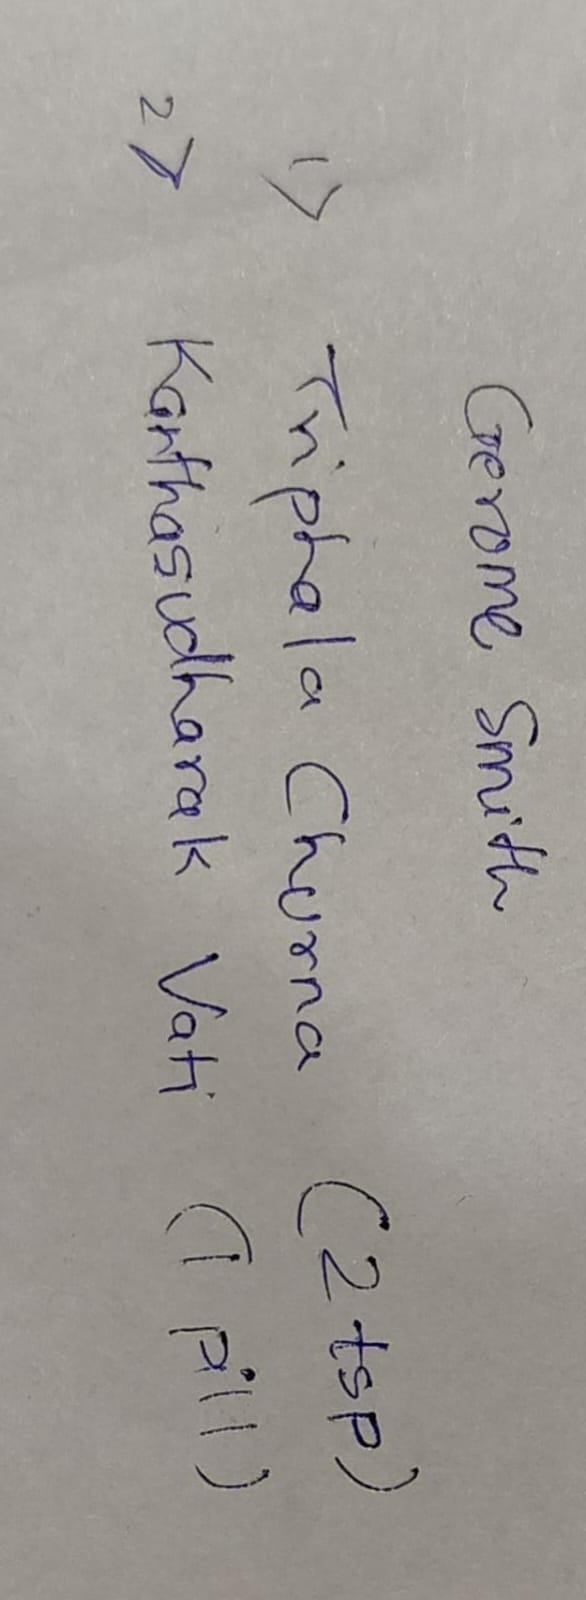 Gerome Smith
1> Triphala Churna (2 tsp)
2> Kanthasudharak Vati (1 pill)